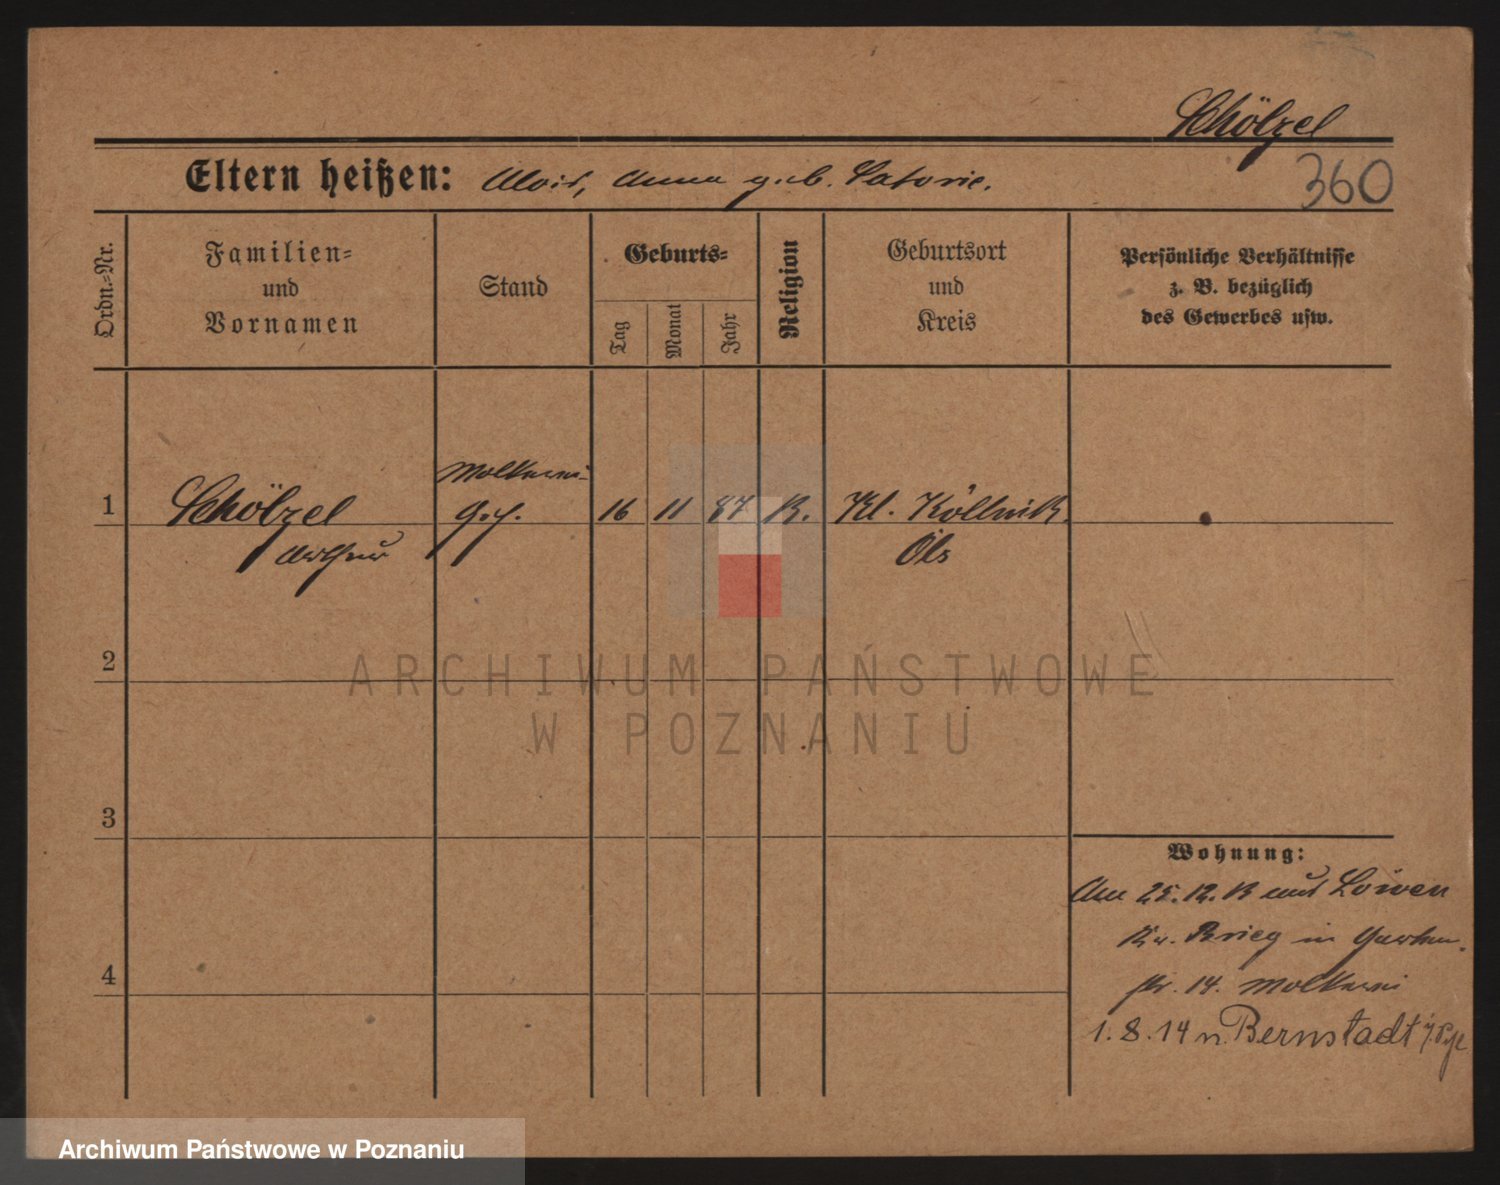 Schölzel
360
Eltern heißen: Alois, Anna geb. Satorie.
Ordn.-Nr.
Familien- und Vornamen
Stand
Geburts-
Tag
Monat
Jahr
Religion
Geburtsort und Kreis
Persönliche Verhältnisse z. B. bezüglich des Gewerbes usw.
Molkerei-
1 Schölzel Geh. 16 11 87 K. Kl. Köllnik.
Arthur Öls
2
3
4
Wohnung:
Am 25. 12. 13 aus Löwen
Kr. Brieg in Garten-
str. 14. Molkerei
1. 8. 14 n. Bernstadt
ARCHIWUM PAŃSTWOWE
W POZNANIU
Archiwum Państwowe w Poznaniu